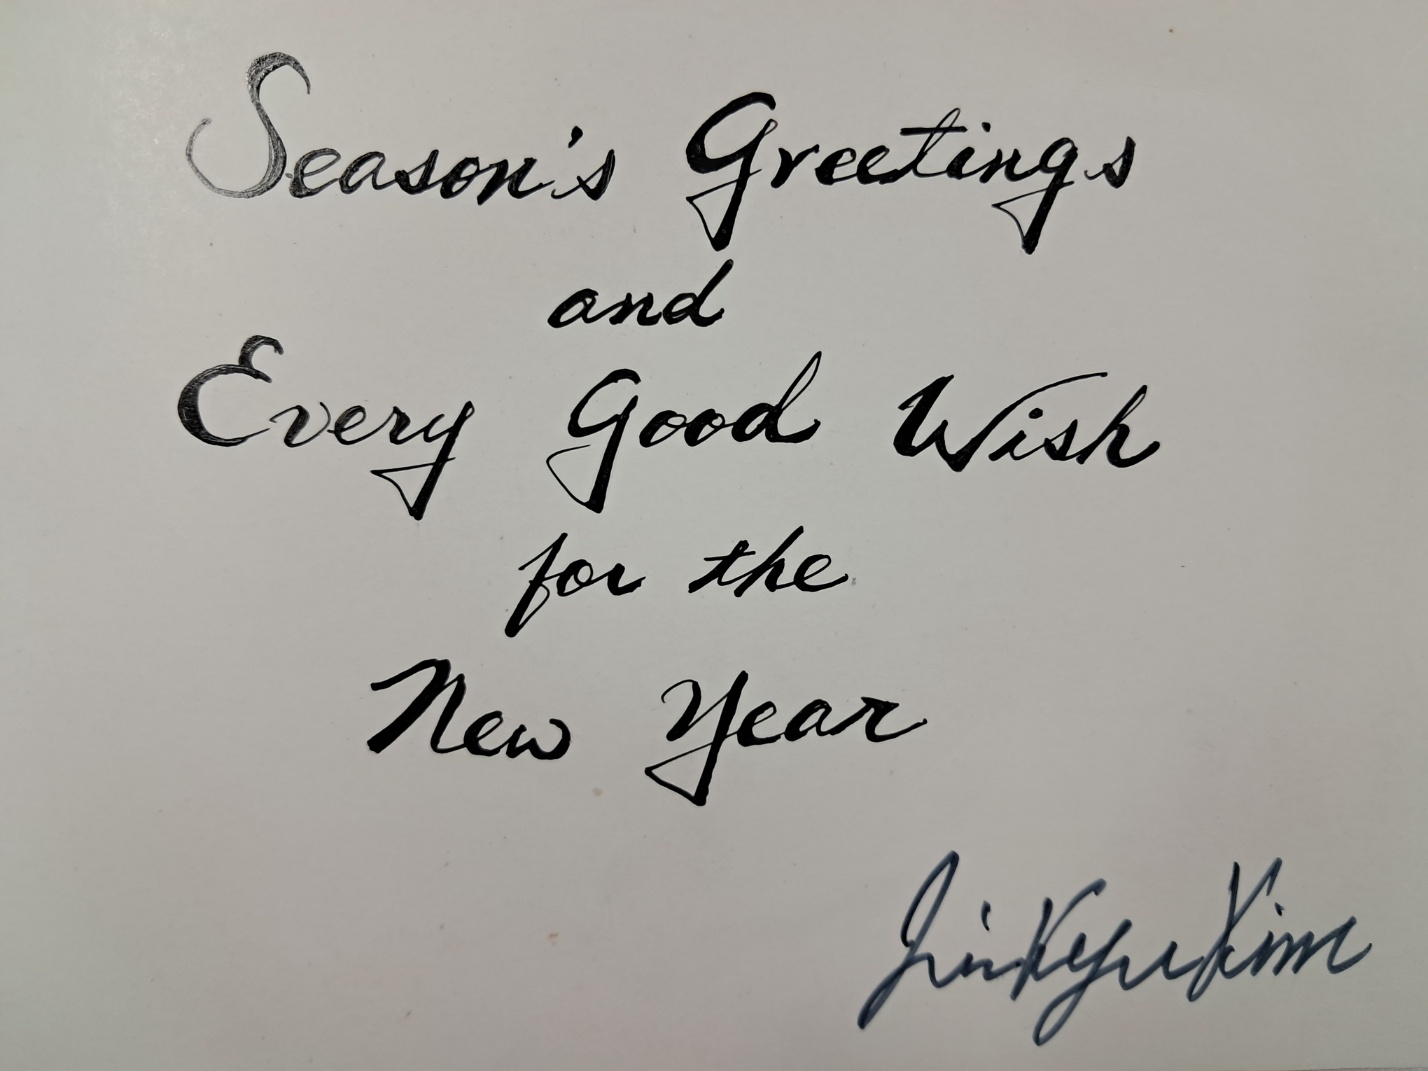 Season's Greetings
and
Every Good Wish
for the
New Year
Jin Kyu Kim